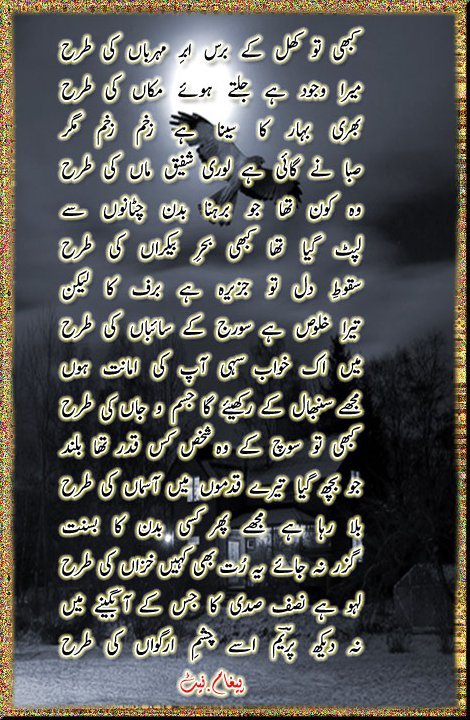 کبھی تو کھل کے برس ابرِ مہرباں کی طرح
میرا وجود ہے جلتے ہوئے مکاں کی طرح
بھری بہار کا سینا ہے زخم زخم مگر
صبا نے گائی ہے لوری شفیق ماں کی طرح
وہ کون تھا جو برہنا بدن چٹانوں سے
لپٹ گیا تھا کبھی بحرِ بیکراں کی طرح
سقوطِ دل تو جزیرہ ہے برف کا لیکن
تیرا خلوص ہے سورج کے سائباں کی طرح
میں اک خواب سہی آپ کی امانت ہوں
مجھے سنبھال کے رکھیئے گا جسم و جاں کی طرح
کبھی تو سوچ کے وہ شخص کس قدر تھا بلند
جو بچھ گیا تیرے قدموں میں آسماں کی طرح
بلا رہا ہے مجھے پھر کسی بدن کا بسنت
گزر نہ جائے یہ رُت بھی کہیں خزاں کی طرح
لہو ہے نصف صدی کا جس کے آبگینے میں
نہ دیکھ پریمؔ اسے چشمِ ارگواں کی طرح
پیغام.نیٹ